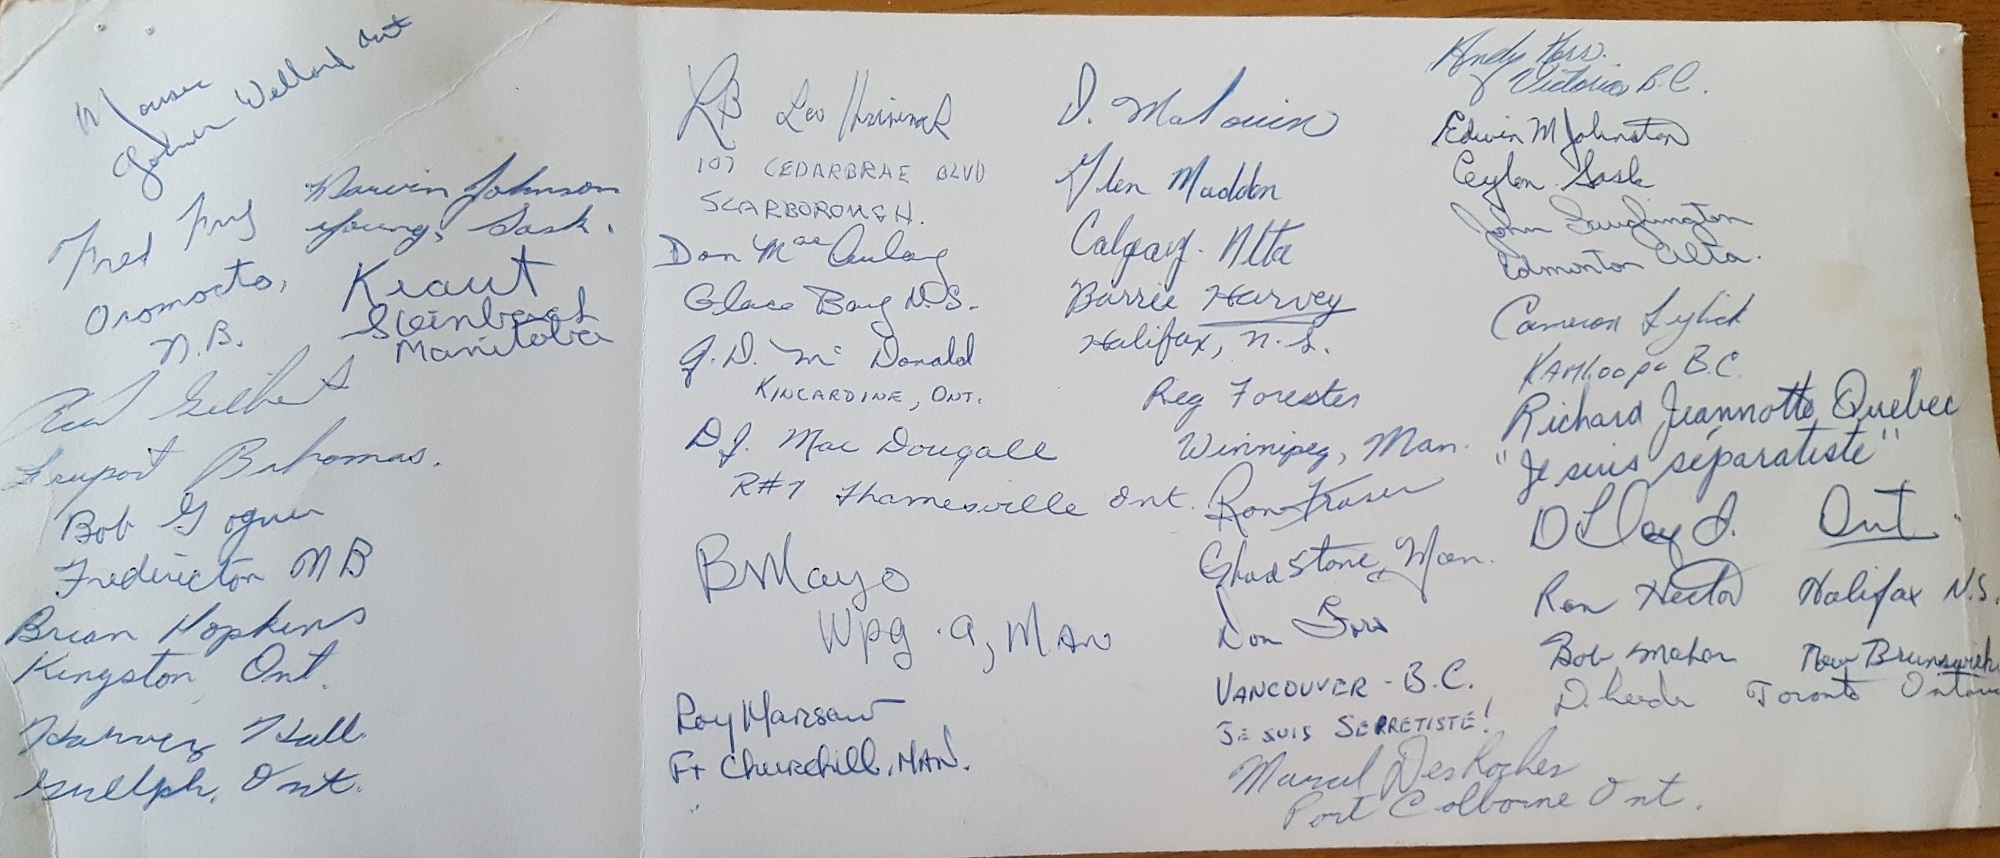 Mouse
Welland Ont
Fred Fry
Oromocto,
N.B.
Darwin Johnson
Young, Sask.
Kraut
Steinbach
Manitoba
Gilbert
Freeport Bahamas.
Bob Gogner
Fredericton NB
Brian Hopkins
Kingston Ont.
Harvey Hall
Guelph, Ont.
Leo
107 CEDARBRAE BLVD
SCARBOROUGH.
Don MacAulay
Glace Bay N.S.
G.D. McDonald
KINCARDINE, ONT.
D.J. MacDougall
R#7 Thamesville Ont.
B Mayo
Wpg. 9, MAN
Roy
Ft Churchill, MAN.
D. Malouin
Glen Madden
Calgary. Alta
Barrie Harvey
Halifax, N.S.
Reg Forester
Winnipeg, Man.
Ron Fraser
Gladstone, Man.
Don
VANCOUVER - B.C.
JE SUIS SEPRETISTE!
Marcel DesRoches
Port Colborne Ont.
Andy Kerr.
Victoria B.C.
Edwin M Johnston
Ceylon. Sask
John Laughington
Edmonton Alta.
Cameron
KAMLOOPS B.C.
Richard Jeannotte, Quebec
"Je suis séparatiste"
D Lloyd. Ont.
Ron Hector Halifax N.S.
Bob Mahar New Brunswick
D. Toronto Ontario